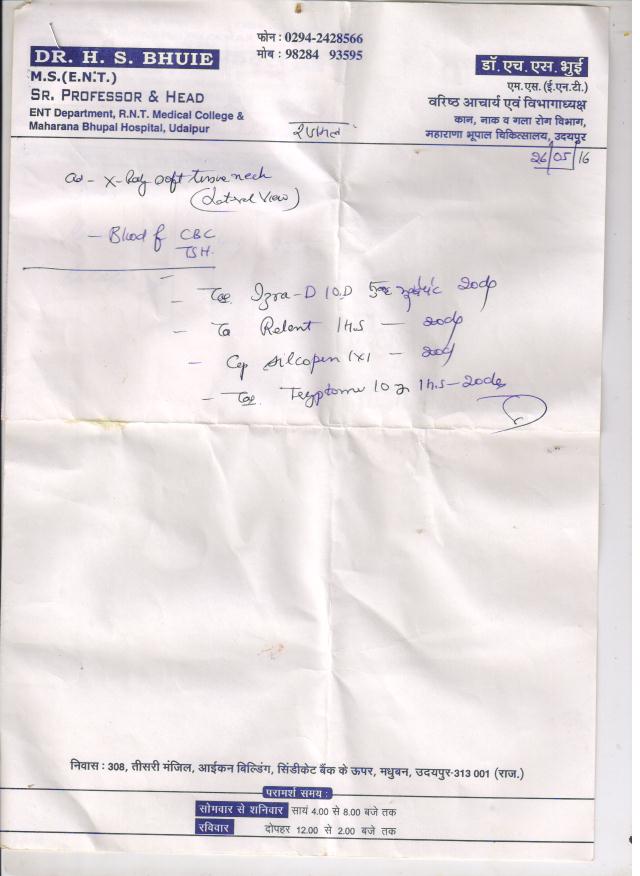 फोन : 0294-2428566
मोब : 98284 93595
DR. H. S. BHUIE
M.S.(E.N.T.)
SR. PROFESSOR & HEAD
ENT Department, R.N.T. Medical College &
Maharana Bhupal Hospital, Udaipur
डॉ. एच. एस. भुई
एम.एस. (ई.एन.टी.)
वरिष्ठ आचार्य एवं विभागाध्यक्ष
कान, नाक व गला रोग विभाग,
महाराणा भूपाल चिकित्सालय, उदयपुर
26/05/16
X-Ray soft tissue neck
(Lateral View)
- Blood f CBC
TSH.
- Izra-D 1 O.D 20
- Relent 1 H.S - 20
- Cap Silcopen 1x1 - 20
- 10 1 h.s - 20
निवास : 308, तीसरी मंजिल, आईकन बिल्डिंग, सिंडीकेट बैंक के ऊपर, मधुबन, उदयपुर-313 001 (राज.)
परामर्श समय :
सोमवार से शनिवार सायं 4.00 से 8.00 बजे तक
रविवार दोपहर 12.00 से 2.00 बजे तक